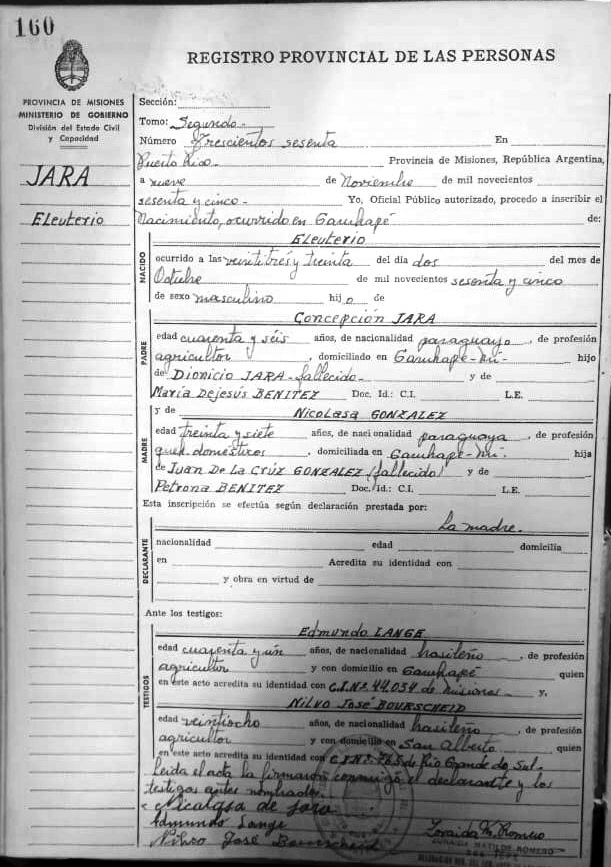 160
REGISTRO PROVINCIAL DE LAS PERSONAS
PROVINCIA DE MISIONES
MINISTERIO DE GOBIERNO
División del Estado Civil
y Capacidad
JARA
Eleuterio
Sección:
Tomo: Segundo
Número Trescientos sesenta En
Puerto Rico Provincia de Misiones, República Argentina,
a nueve de Noviembre de mil novecientos
sesenta y cinco Yo, Oficial Público autorizado, procedo a inscribir el
Nacimiento, ocurrido en Garuhapé de:
NACIDO
Eleuterio
ocurrido a las veintitrés y treinta del día dos del mes de
Octubre de mil novecientos sesenta y cinco
de sexo masculino hijo de
PADRE
Concepción JARA
edad cuarenta y séis años, de nacionalidad paraguayo, de profesión
agricultor, domiciliado en Garuhapé-mí- hijo
de Dionicio JARA-fallecido- y de
María Dejesús BENITEZ Doc. Id.: C.I. L.E.
MADRE
y de Nicolasa GONZALEZ
edad treinta y siete años, de nacionalidad paraguaya, de profesión
queh. domésticos, domiciliada en Garuhapé-mí- hija
de Juan De La Crúz GONZALEZ (fallecido) y de
Petrona BENITEZ Doc. Id.: C.I. L.E.
Esta inscripción se efectúa según declaración prestada por:
La madre.
DECLARANTE
nacionalidad edad domicilia
en Acredita su identidad con
y obra en virtud de
Ante los testigos:
TESTIGOS
Edmundo LANGE
edad cuarenta y ún años, de nacionalidad brasileño, de profesión
agricultor y con domicilio en Garuhapé quien
en este acto acredita su identidad con C.I.Nº 44.034 de Misiones y,
Nilvo José BOURSCHEID
edad veintiocho años, de nacionalidad brasileño, de profesión
agricultor y con domicilio en San Alberto quien
en este acto acredita su identidad con C.I.Nº 765 de Rio Grande do Sul-
Leída el acta la firmarón conmigo el declarante y los
testigos antes nombrados.
Nicolasa de Jara
Edmundo Lange
Nilvo José Bourscheid
Zoraida M. Romero
ZORAIDA MATILDE ROMERO